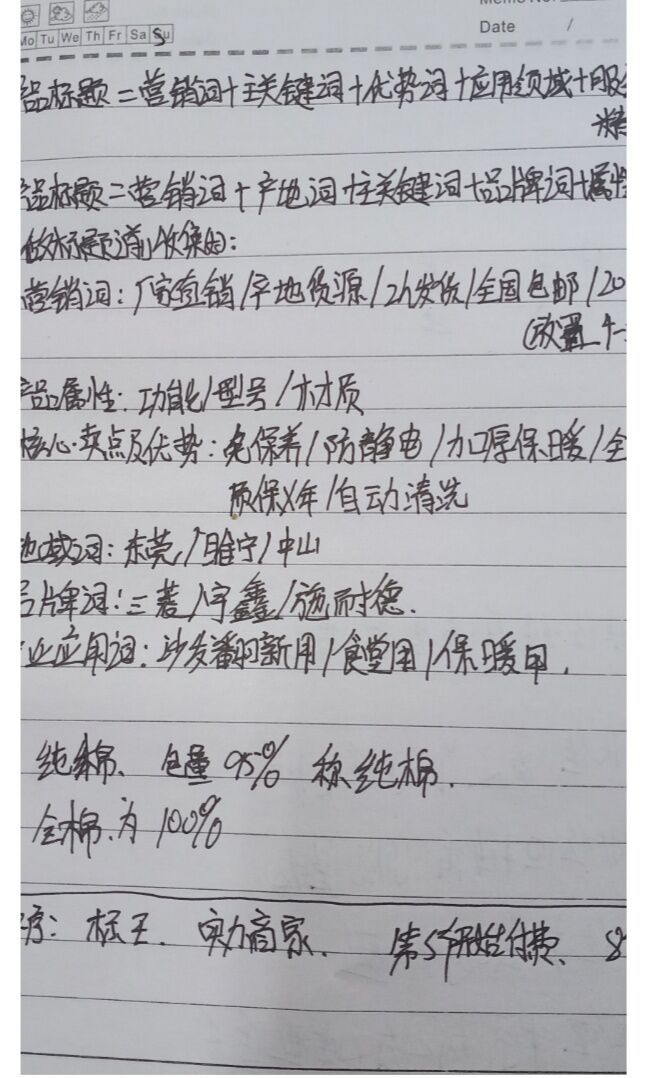 Mo Tu We Th Fr Sa Su
Date /
品标题=营销词+主关键词+优势词+应用领域+服
品标题=营销词+产地词+主关键词+品牌词+属性
做标题前收集的:
营销词:厂家直销/产地货源/2h发货/全国包邮/20
产品属性:功能/型号/材质
核心·卖点及优势:免保养/防静电/加厚保暖/全
质保X年/自动清洗
地域词:东莞/睢宁/中山
品牌词:三菱/宇鑫/施耐德.
业应用词:沙发翻新用/食堂用/保暖用.
纯棉、含量95% 称纯棉.
全棉.为100%
序:标王.实力商家. 第5个开始付费、8